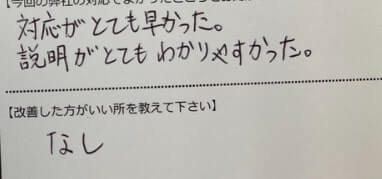 【今回の弊社の対応でよかったところを
対応がとても早かった。
説明がとてもわかりやすかった。
【改善した方がいい所を教えて下さい】
なし